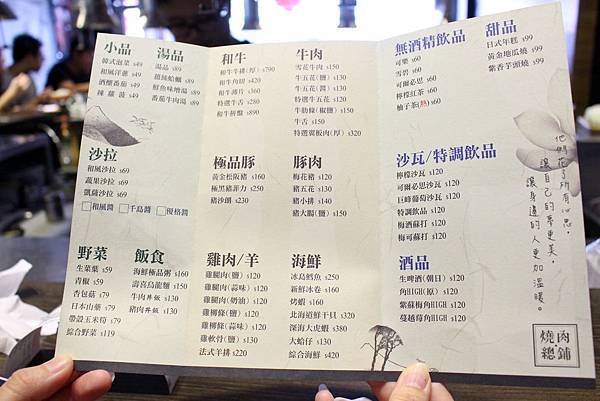 小品
韓式泡菜 $49
和風洋蔥 $49
酒釀番茄 $49
辣蘿蔔 $49
湯品
湯品 $89
蒜辣蛤蠣 $89
鮮魚味噌湯 $89
番茄牛肉湯 $89
沙拉
和風沙拉 $69
蔬果沙拉 $69
凱薩沙拉 $69
□和風醬 □千島醬 □優格醬
野菜
生菜葉 $59
青椒 $59
杏包菇 $79
日本山藥 $79
帶殼玉米筍 $79
綜合野菜 $119
飯食
海鮮極品粥 $160
壽喜烏龍麵 $150
牛肉丼飯 $130
豬肉丼飯 $130
和牛
和牛牛排(厚) $790
和牛角切 $420
和牛薄片 $360
特選牛舌 $280
和牛拼盤 $890
極品豚
黃金松阪豬 $160
極黑豬菲力 $250
豬沙朗 $230
雞肉/羊
雞腿肉(鹽) $120
雞腿肉(蒜味) $120
雞腿肉(奶油) $120
雞柳條(鹽) $120
雞柳條(蒜味) $120
雞軟骨(鹽) $130
法式羊排 $220
牛肉
雪花牛肉 $150
牛五花(鹽) $130
牛五花(醬) $130
特選牛五花 $200
牛肋條(椒鹽) $150
牛舌 $150
特選翼板肉(厚) $320
豚肉
梅花豬 $120
豬五花 $130
豬小排 $140
豬大腸(鹽) $150
海鮮
冰島鱈魚 $250
新鮮冰卷 $160
烤蝦 $160
北海道鮮干貝 $320
深海大虎蝦 $380
大蛤仔 $150
綜合海鮮 $420
無酒精飲品
可樂 $60
雪碧 $60
可爾必思 $60
檸檬紅茶 $60
柚子茶(熱) $60
甜品
日式年糕 $99
黃金地瓜燒 $99
紫香芋頭燒 $99
沙瓦/特調飲品
檸檬沙瓦 $120
可爾必思沙瓦 $120
巨峰葡萄沙瓦 $120
特調飲品 $120
梅酒蘇打 $120
梅可蘇打 $120
酒品
生啤酒(朝日) $120
角HIGH(原) $120
紫蘇梅角HIGH $120
蔓越莓角HIGH $120
他們花了所有心思,
讓自己的夢更美,
讓身邊的人更加溫暖。
燒肉
總鋪